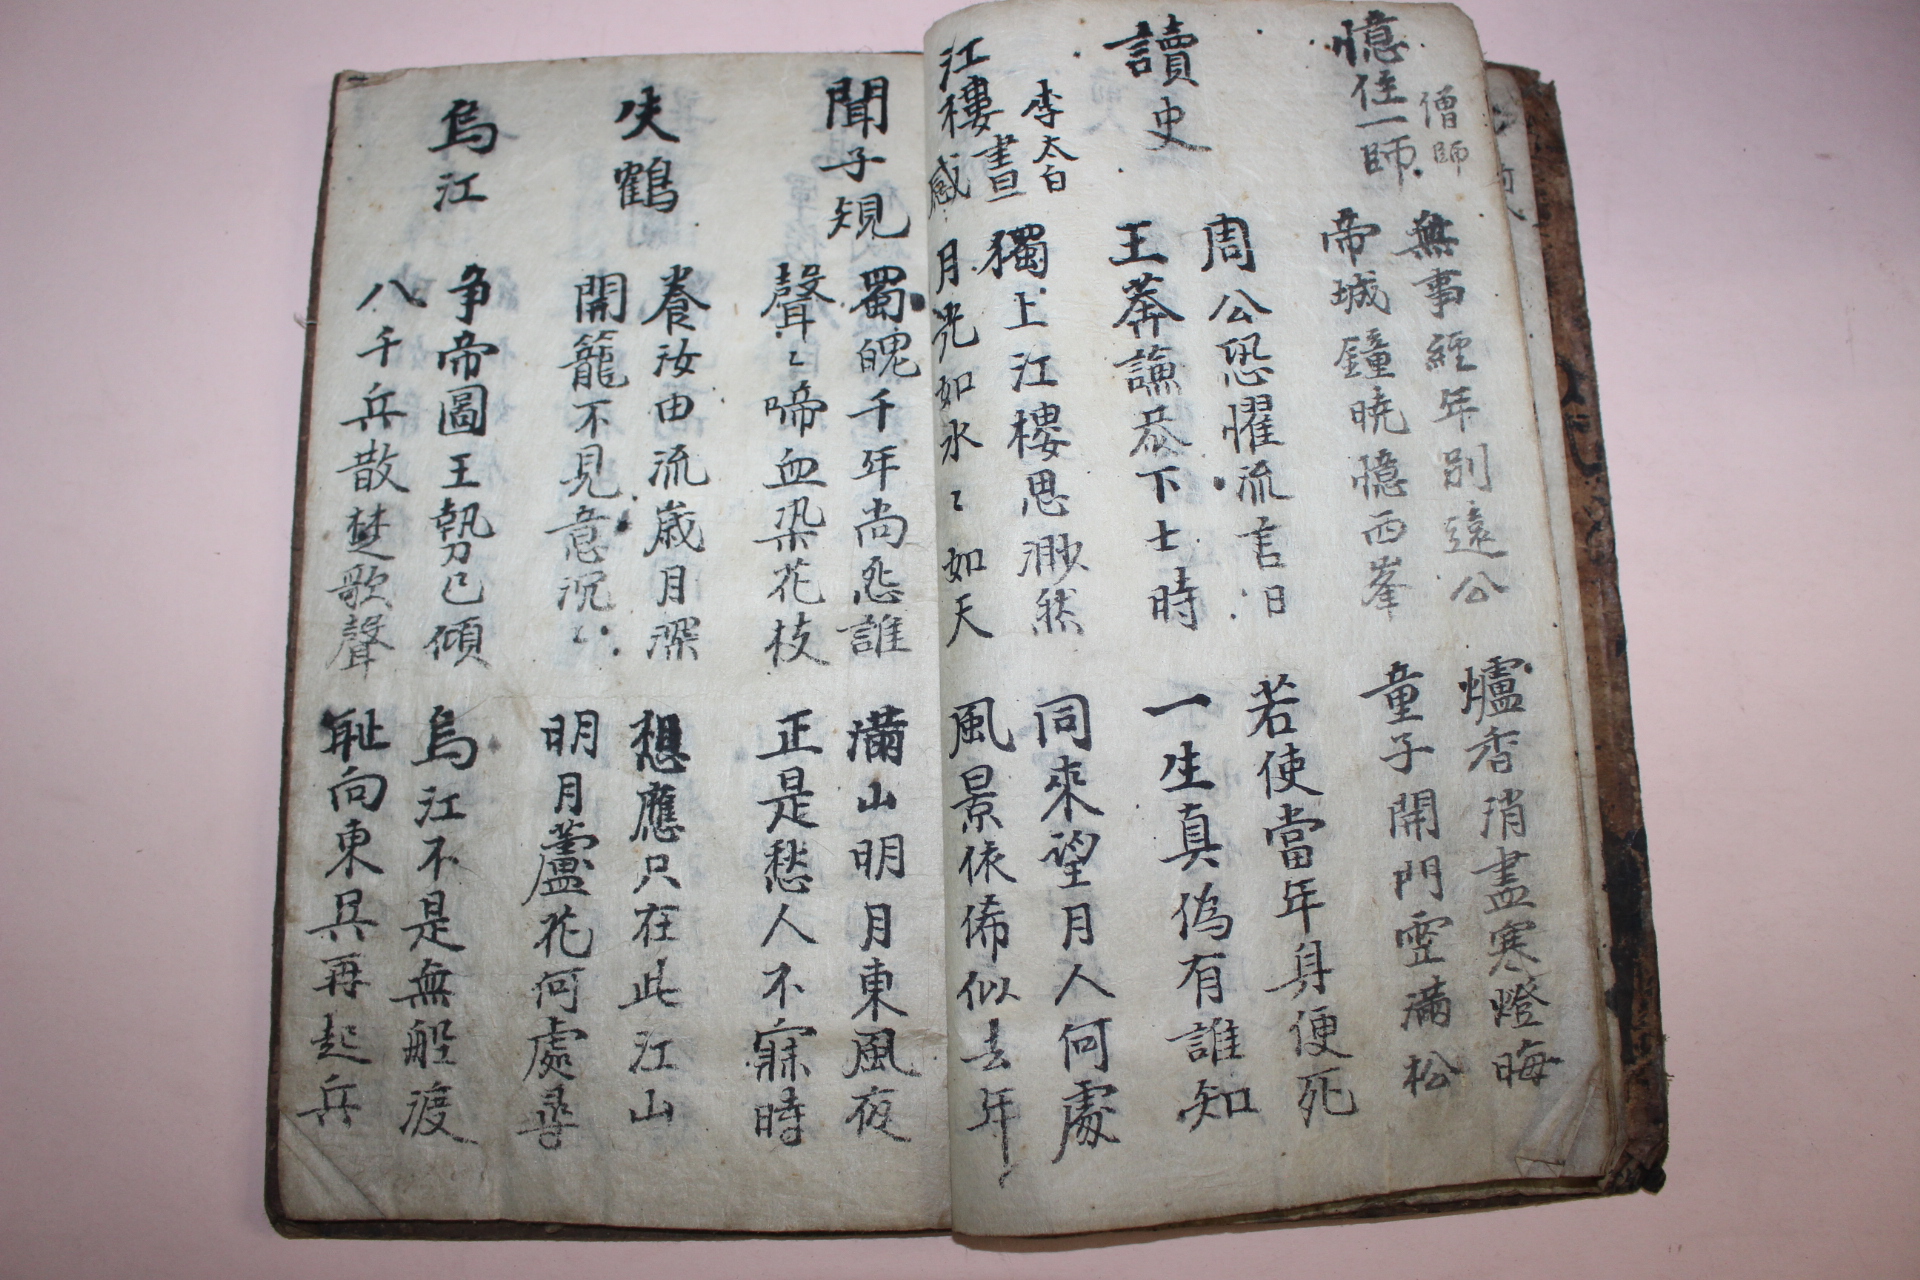 憶住一師
僧師
無事經年別遠公
帝城鐘曉憶西峯
爐香消盡寒燈晦
童子開門雪滿松
讀史
周公恐懼流言日
王莽謙恭下士時
若使當年身便死
一生真偽有誰知
李太白
江樓書感
獨上江樓思渺然
月光如水〻如天
同來望月人何處
風景依俙似去年
聞子規
蜀魄千年尚怨誰
聲〻啼血染花枝
滿山明月東風夜
正是愁人不寐時
失鶴
養汝由流歲月深
開籠不見意沉〻
想應只在此江山
明月蘆花何處尋
烏江
争帝圖王勢已傾
八千兵散楚歌聲
烏江不是無船渡
耻向東吳再起兵